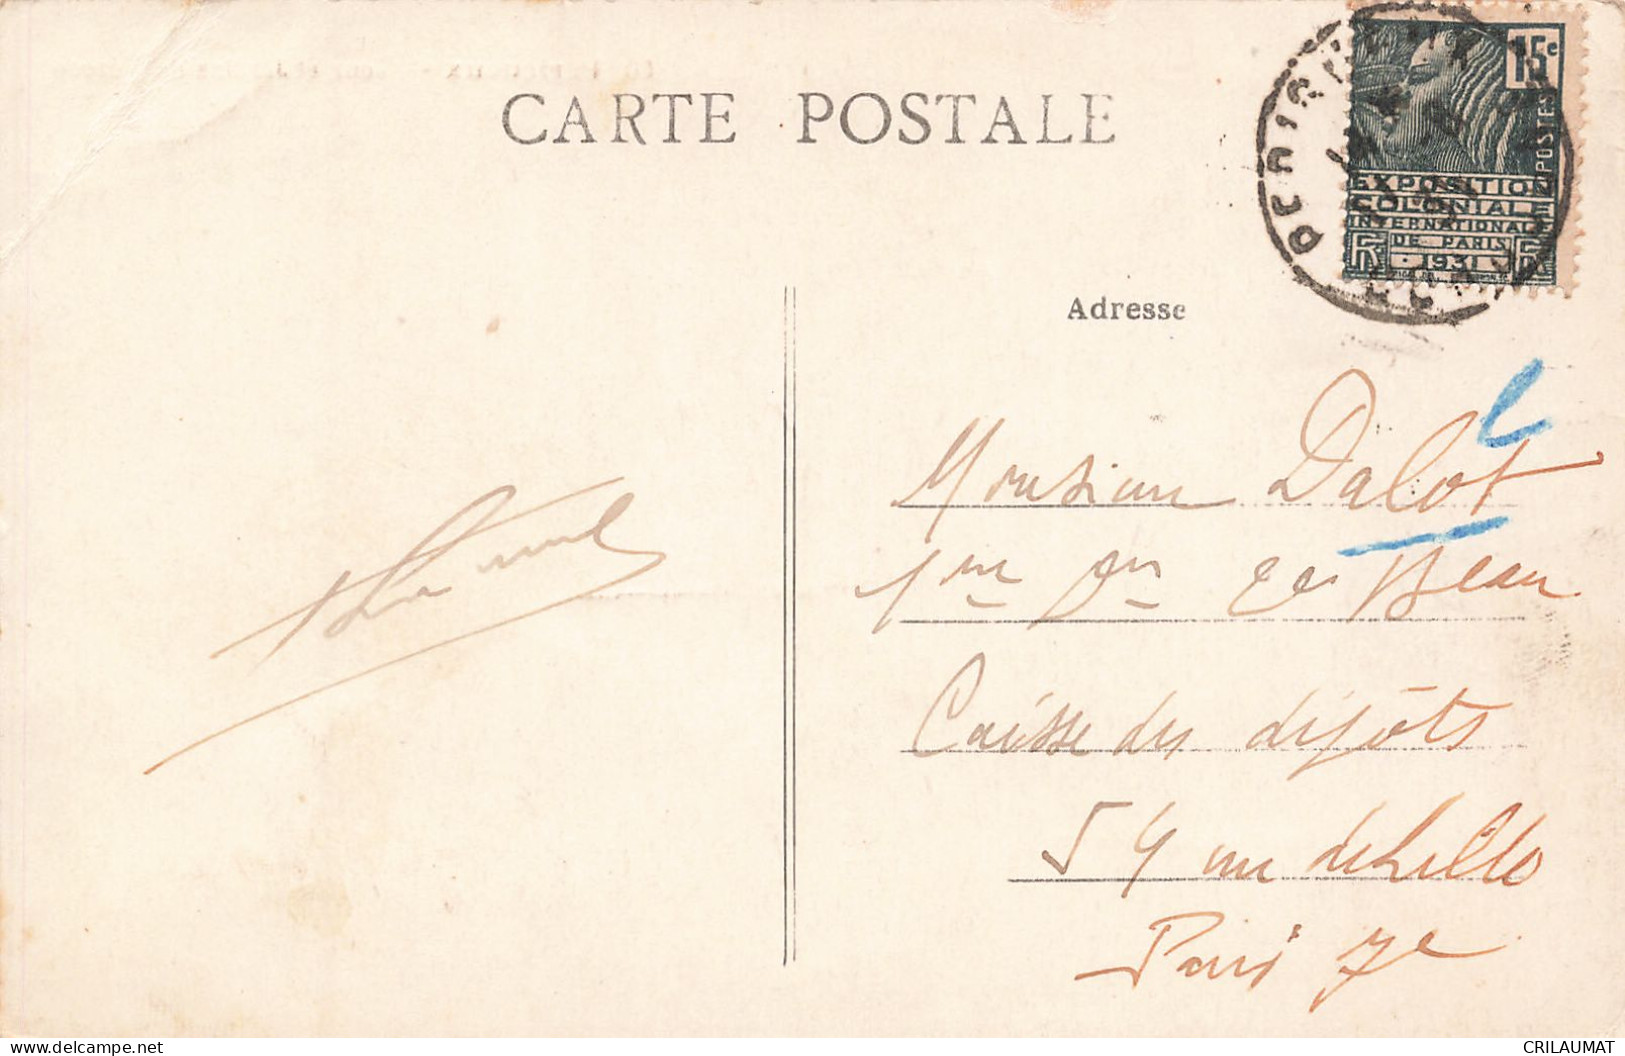 CARTE POSTALE
15c
POSTES
EXPOSITION
COLONIALE
INTERNATIONALE
DE PARIS
RF 1931 RF
Adresse
Monsieur Dalot
1er
Caisse des dépôts
54 rue de Lille
Paris 7e
delcampe.net
CRILAUMAT